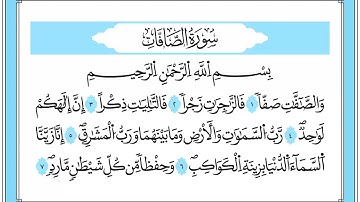 سُورَةُ الصَّافَّاتِ
بِسْمِ اللَّهِ الرَّحْمَٰنِ الرَّحِيمِ
وَالصَّٰٓفَّٰتِ صَفًّا ١ فَالزَّٰجِرَٰتِ زَجْرًا ٢ فَالتَّٰلِيَٰتِ ذِكْرًا ٣ إِنَّ إِلَٰهَكُمْ
لَوَٰحِدٌ ٤ رَّبُّ السَّمَٰوَٰتِ وَالْأَرْضِ وَمَا بَيْنَهُمَا وَرَبُّ الْمَشَٰرِقِ ٥ إِنَّا زَيَّنَّا
السَّمَآءَ الدُّنْيَا بِزِينَةٍ الْكَوَاكِبِ ٦ وَحِفْظًا مِّن كُلِّ شَيْطَٰنٍ مَّارِدٍ ٧